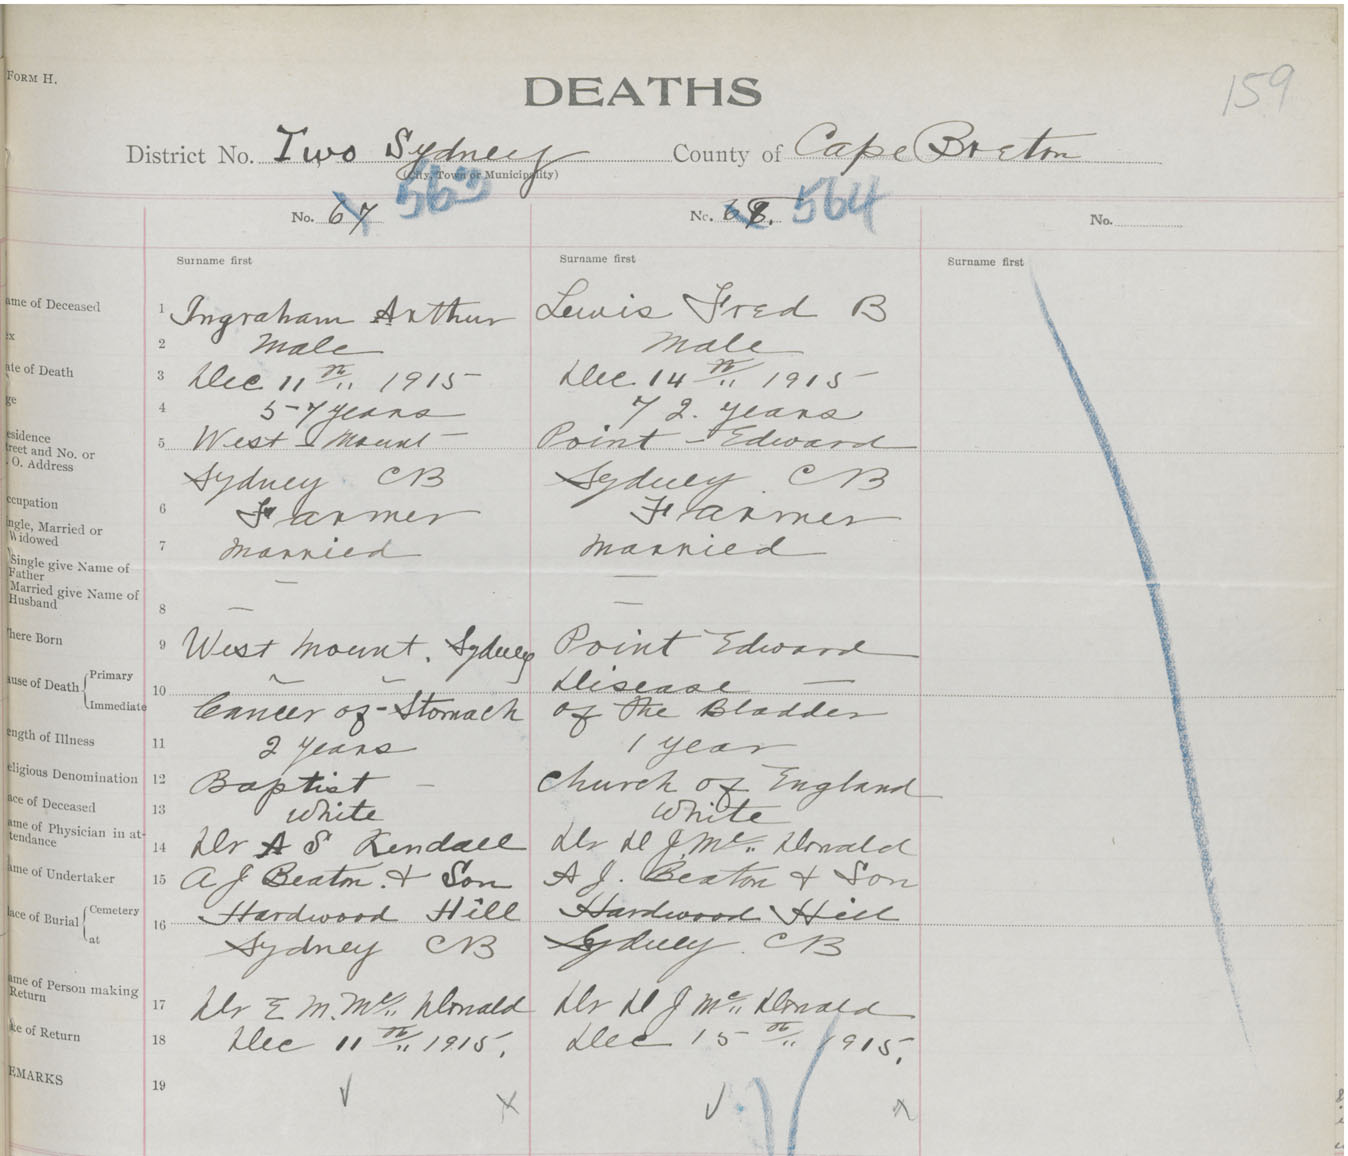 FORM H.
DEATHS
159
District No. Two Sydney County of Cape Breton
(City, Town or Municipality)
No. 67 563 No. 68. 564 No.
Surname first Surname first Surname first
ame of Deceased 1 Ingraham Arthur Lewis Fred B
x 2 Male Male
ate of Death 3 Dec 11th 1915 Dec. 14th 1915
ge 4 57 years 72. years
esidence 5 West Mount Point Edward
treet and No. or
. O. Address Sydney CB Sydney. CB
ccupation 6 Farmer Farmer
ngle, Married or
Widowed 7 Married Married
Single give Name of
Father — —
Married give Name of
Husband 8 — —
here Born 9 West Mount. Sydney Point Edward
ause of Death Primary 10 Disease —
Immediate Cancer of Stomach of the Bladder
ength of Illness 11 2 years 1 year
eligious Denomination 12 Baptist – Church of England
ace of Deceased 13 White White
ame of Physician in at-
tendance 14 Dr A S Kendall Dr D J. Mc Donald
ame of Undertaker 15 A J Beaton & Son A J. Beaton & Son
lace of Burial Cemetery 16 Hardwood Hill Hardwood Hill
at Sydney CB Sydney. CB
ame of Person making
Return 17 Dr E M. Mc Donald Dr D J Mc Donald
te of Return 18 Dec 11th 1915. Dec 15th 1915.
EMARKS 19